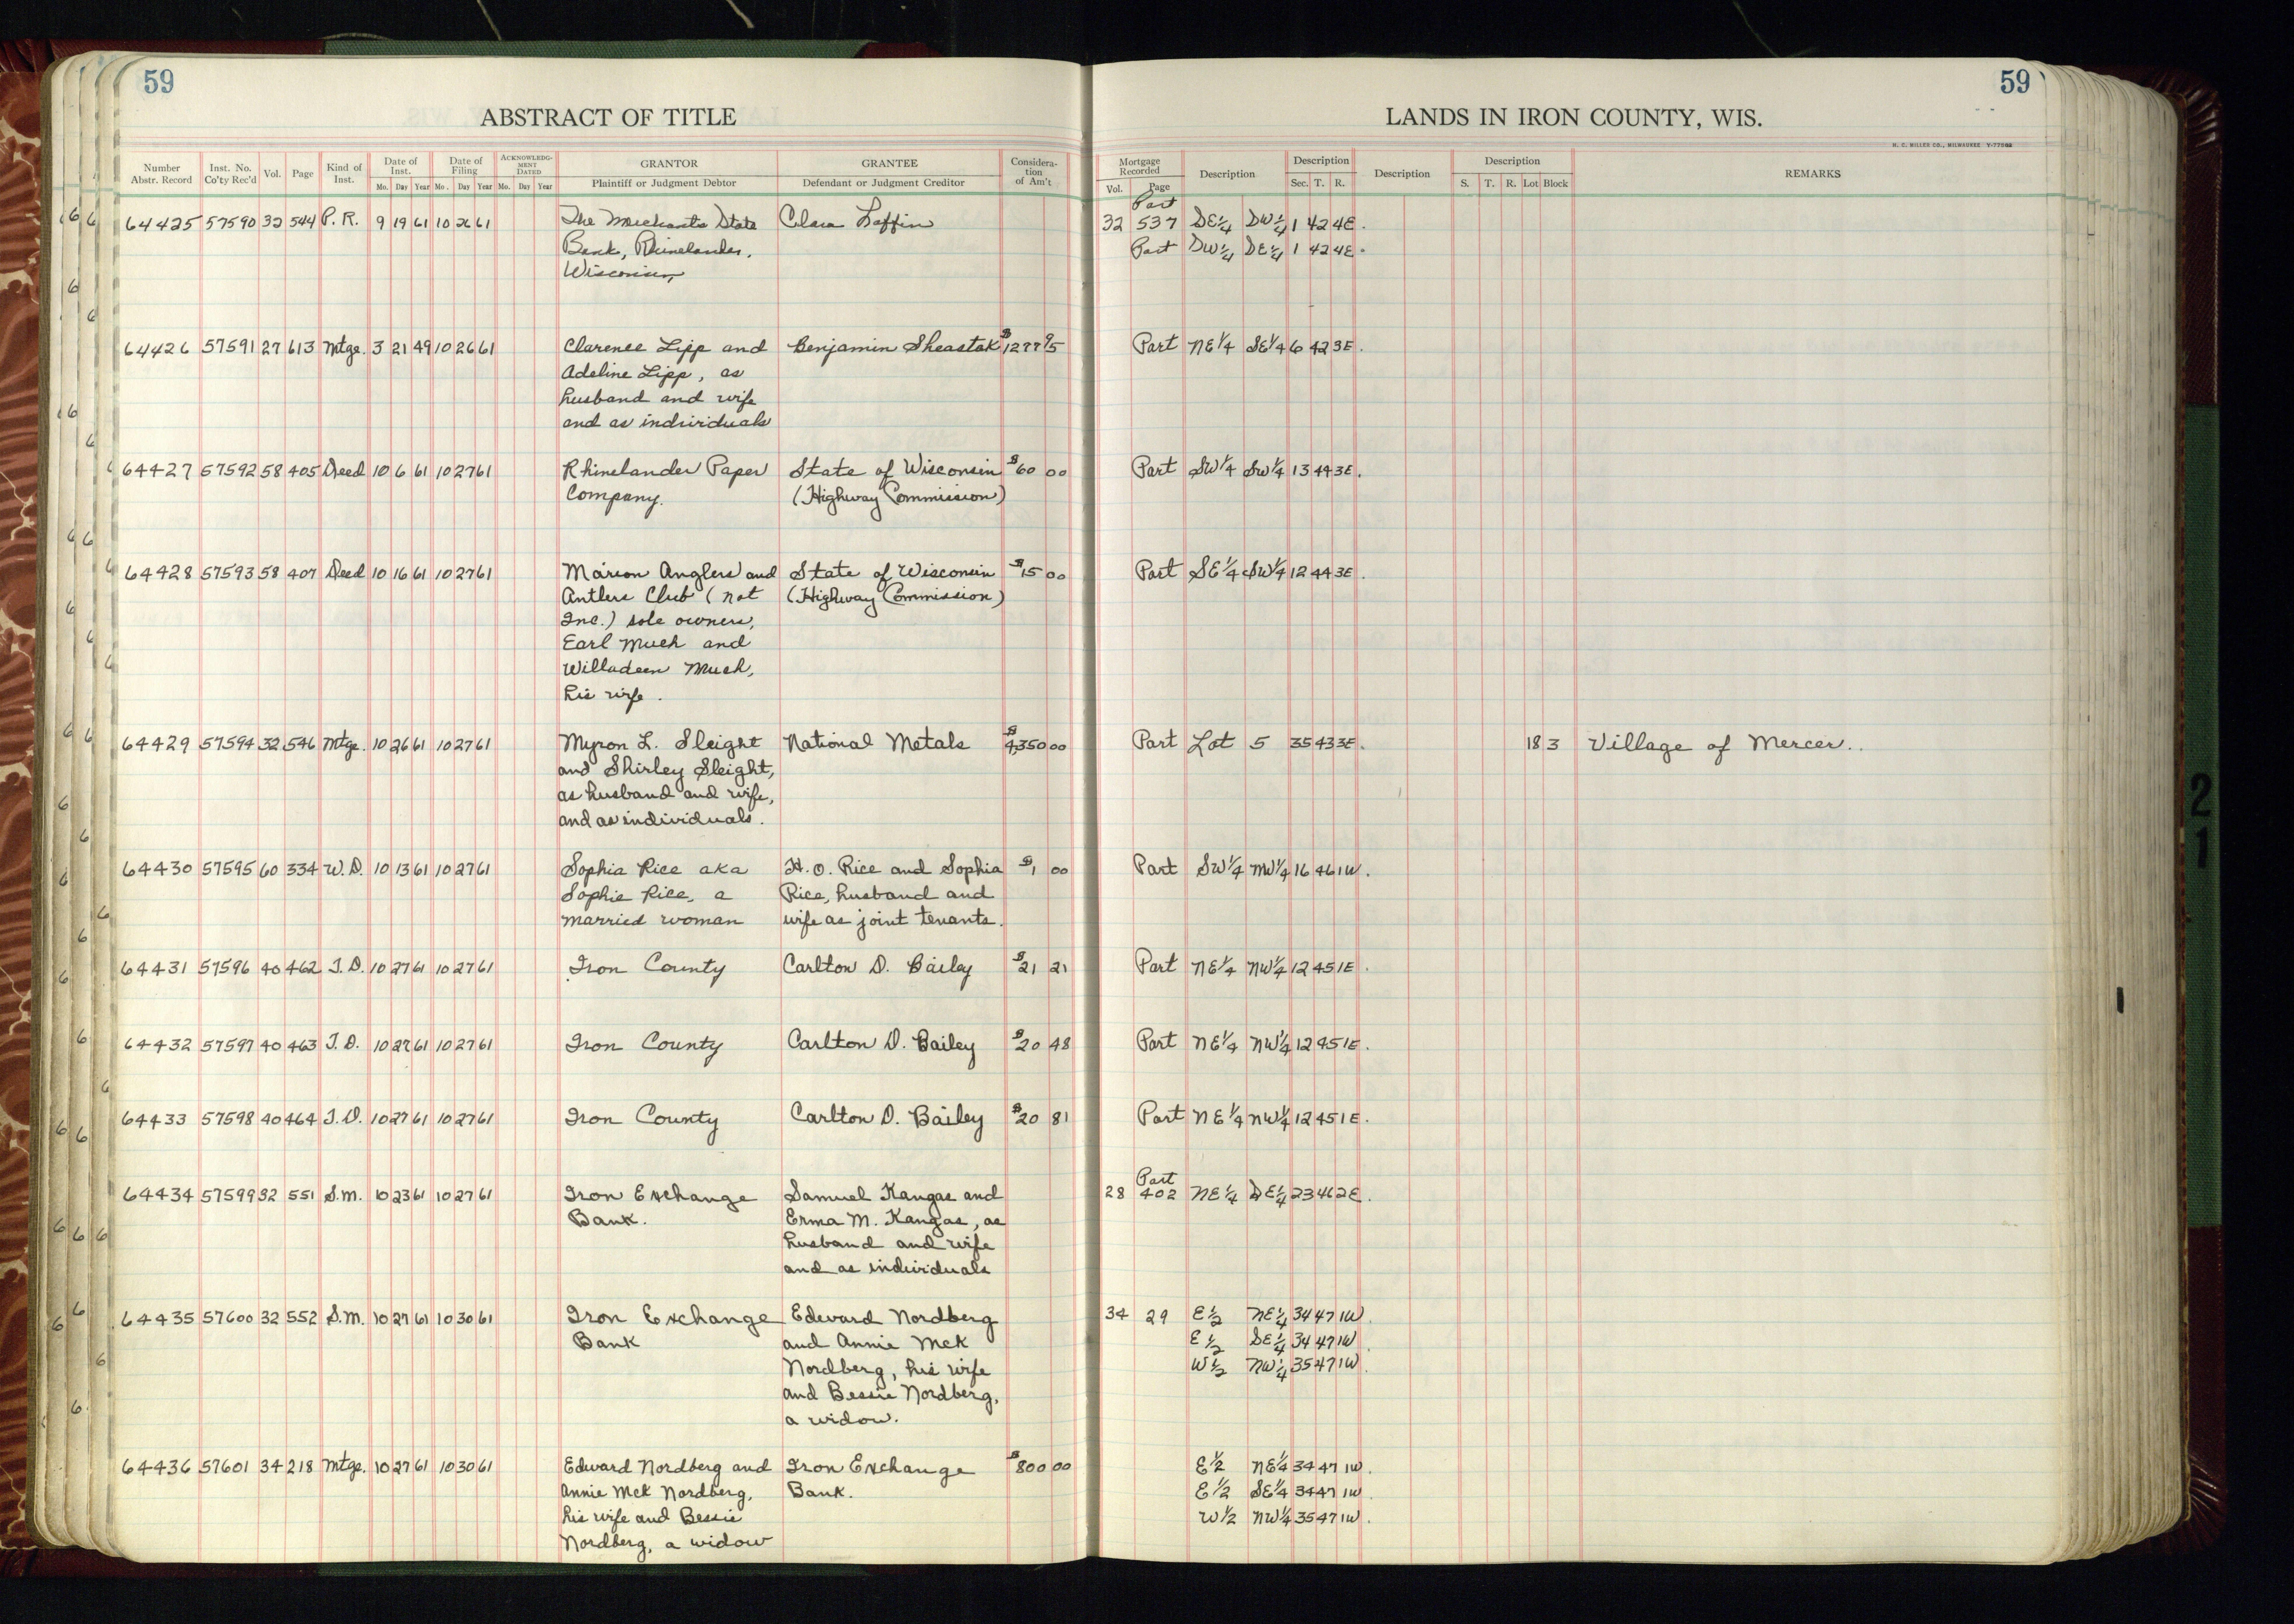 59
59
ABSTRACT OF TITLE
LANDS IN IRON COUNTY, WIS.
H. C. MILLER CO., MILWAUKEE
Number Abstr. Record Inst. No. Co'ty Rec'd Vol. Page Kind of Inst. Date of Inst. Mo. Day Year Date of Filing Mo. Day Year ACKNOWLEDG-MENT DATED Mo. Day Year GRANTOR Plaintiff or Judgment Debtor GRANTEE Defendant or Judgment Creditor Considera-tion of Am't Mortgage Recorded Vol. Page Description Description Sec. T. R. Description Description S. T. R. Lot Block REMARKS
Part
64425 57590 32 544 P. R. 9 19 61 10 26 61 The Merchants State Clara Laffin 32 537 SE1/4 SW1/4 1 42 4E.
Bank, Rhinelander, Part SW1/4 SE1/4 1 42 4E.
Wisconsin
64426 57591 27 613 Mtge. 3 21 49 10 26 61 Clarence Lipp and Benjamin Sheastak $1277 95 Part NE1/4 SE1/4 6 42 3E.
Adeline Lipp, as
husband and wife
and as individuals
64427 57592 58 405 Deed 10 6 61 10 27 61 Rhinelander Paper State of Wisconsin $60 00 Part SW1/4 SW1/4 13 44 3E.
Company. (Highway Commission)
64428 57593 58 407 Deed 10 16 61 10 27 61 Marion Anglers and State of Wisconsin $15 00 Part SE1/4 SW1/4 12 44 3E.
Antlers Club (not (Highway Commission)
Inc.) sole owners,
Earl Much and
Willadeen Much,
his wife.
64429 57594 32 546 Mtge. 10 26 61 10 27 61 Myron L. Sleight National Metals $4,350 00 Part Lot 5 35 43 3E. 18 3 Village of Mercer.
and Shirley Sleight,
as husband and wife,
and as individuals.
64430 57595 60 334 W. D. 10 13 61 10 27 61 Sophia Rice aka H. O. Rice and Sophia $1 00 Part SW1/4 NW1/4 16 46 1W.
Sophie Rice, a Rice, husband and
married woman wife as joint tenants.
64431 57596 40 462 T. D. 10 27 61 10 27 61 Iron County Carlton D. Bailey $21 21 Part NE1/4 NW1/4 12 45 1E.
64432 57597 40 463 T. D. 10 27 61 10 27 61 Iron County Carlton D. Bailey $20 48 Part NE1/4 NW1/4 12 45 1E.
64433 57598 40 464 T. D. 10 27 61 10 27 61 Iron County Carlton D. Bailey $20 81 Part NE1/4 NW1/4 12 45 1E.
Part
64434 57599 32 551 S. M. 10 23 61 10 27 61 Iron Exchange Samuel Kangas and 28 402 NE1/4 SE1/4 23 46 2E.
Bank. Erma M. Kangas, as
husband and wife
and as individuals
64435 57600 32 552 S. M. 10 27 61 10 30 61 Iron Exchange Edward Nordberg 34 29 E1/2 NE1/4 34 47 1W.
Bank and Annie McK E1/2 SE1/4 34 47 1W.
Nordberg, his wife W1/2 NW1/4 35 47 1W.
and Bessie Nordberg,
a widow.
64436 57601 34 218 Mtge. 10 27 61 10 30 61 Edward Nordberg and Iron Exchange $800 00 E1/2 NE1/4 34 47 1W.
Annie McK Nordberg, Bank. E1/2 SE1/4 34 47 1W.
his wife and Bessie W1/2 NW1/4 35 47 1W.
Nordberg, a widow
21